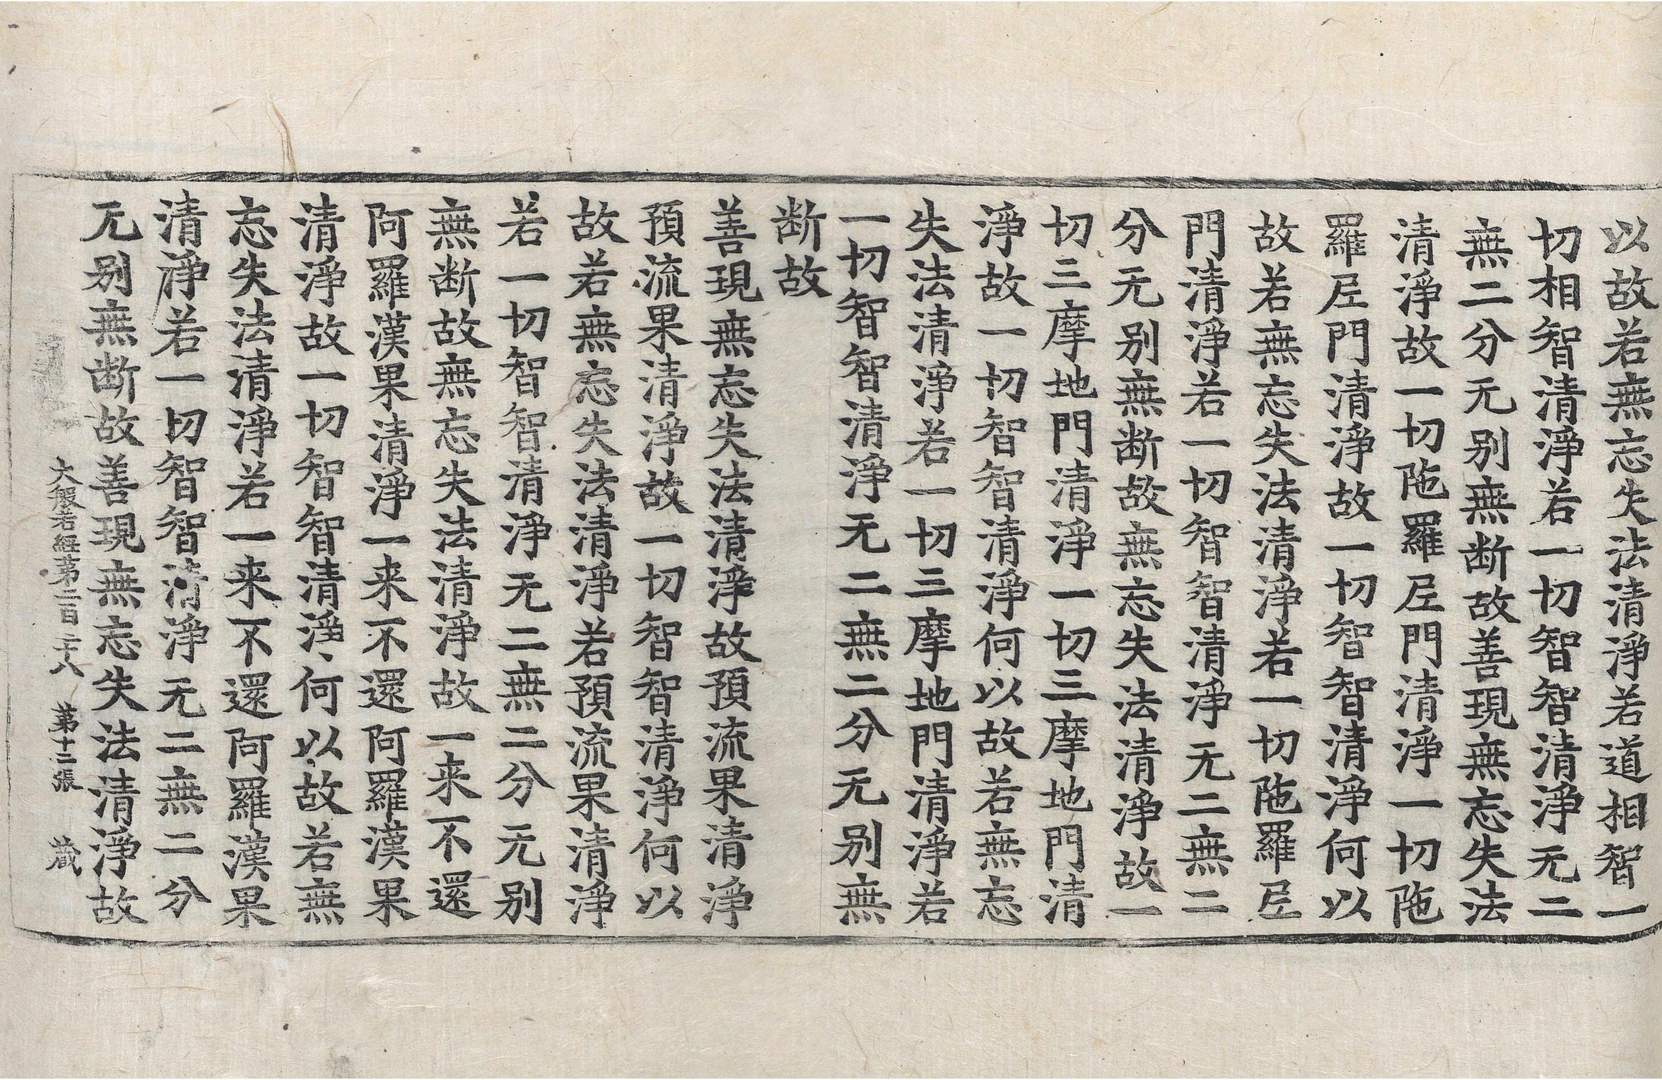 以故若無忘失法清淨若道相智一
切相智清淨若一切智智清淨无二
無二分无别無断故善現無忘失法
清淨故一切陁羅尼門清淨一切陁
羅尼門清淨故一切智智清淨何以
故若無忘失法清淨若一切陁羅尼
門清淨若一切智智清淨无二無二
分无别無断故無忘失法清淨故一
切三摩地門清淨一切三摩地門清
淨故一切智智清淨何以故若無忘
失法清淨若一切三摩地門清淨若
一切智智清淨无二無二分无别無
断故
善現無忘失法清淨故預流果清淨
預流果清淨故一切智智清淨何以
故若無忘失法清淨若預流果清淨
若一切智智清淨无二無二分无别
無断故無忘失法清淨故一来不還
阿羅漢果清淨一来不還阿羅漢果
清淨故一切智智清淨何以故若無
忘失法清淨若一来不還阿羅漢果
清淨若一切智智清淨无二無二分
无别無断故善現無忘失法清淨故
大般若経第二百三十八 第十三張 蔵